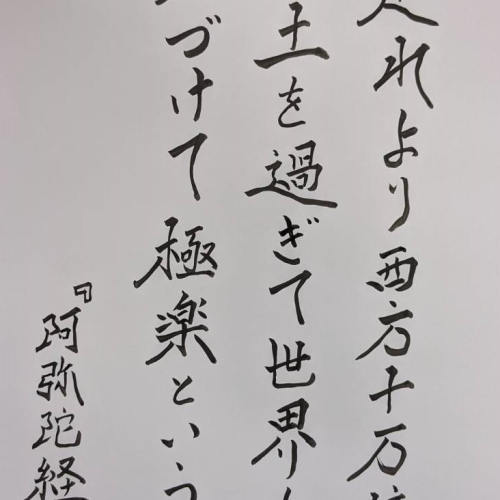 れより西方十万
土を過ぎて世界
づけて極楽という
『阿弥陀経